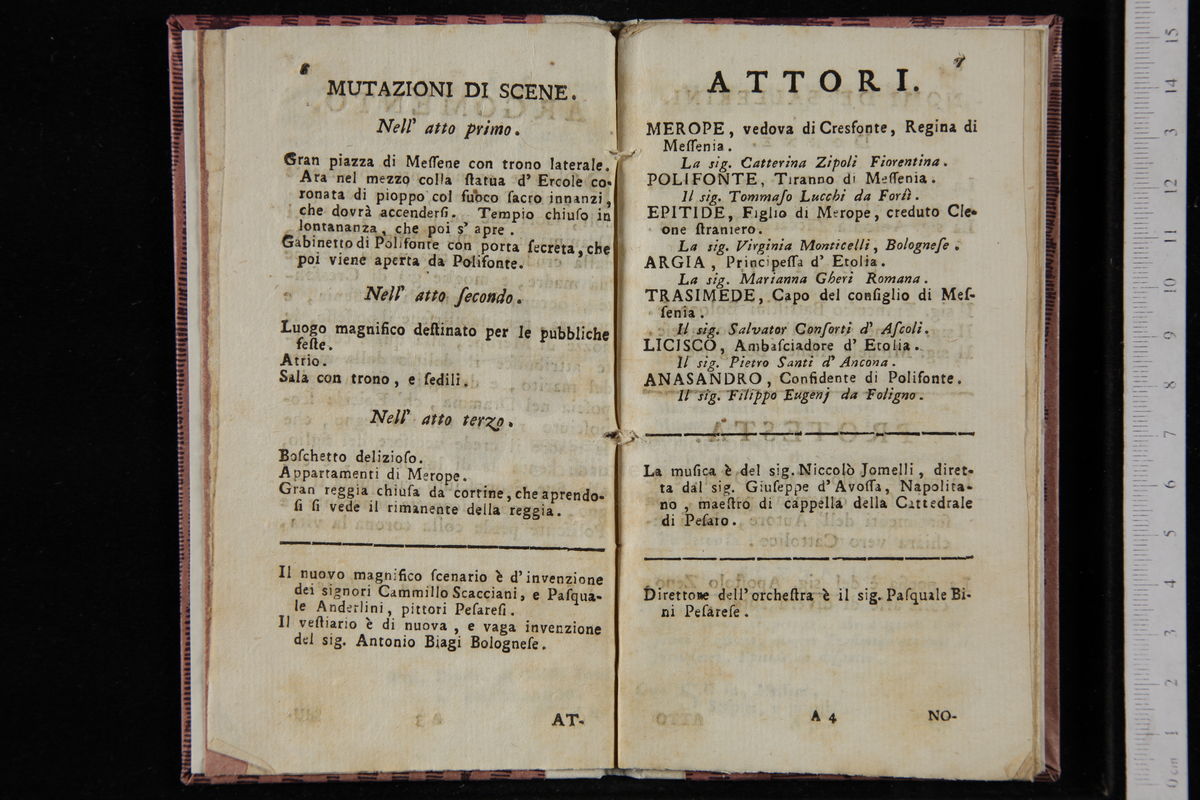 6
MUTAZIONI DI SCENE.
Nell' atto primo.
Gran piazza di Meſſene con trono laterale.
Ara nel mezzo colla ſtatua d' Ercole co-
ronata di pioppo col fuoco ſacro innanzi,
che dovrà accenderſi. Tempio chiuſo in
lontananza, che poi s' apre.
Gabinetto di Polifonte con porta ſecreta, che
poi viene aperta da Polifonte.
Nell' atto ſecondo.
Luogo magnifico deſtinato per le pubbliche
feſte.
Atrio.
Sala con trono, e ſedili.
Nell' atto terzo.
Boſchetto delizioſo.
Appartamenti di Merope.
Gran reggia chiuſa da cortine, che aprendo-
ſi ſi vede il rimanente della reggia.
Il nuovo magnifico ſcenario è d' invenzione
dei signori Cammillo Scacciani, e Paſqua-
le Anderlini, pittori Peſareſi.
Il veſtiario è di nuova, e vaga invenzione
del sig. Antonio Biagi Bologneſe.
AT-
7
ATTORI.
MEROPE, vedova di Cresfonte, Regina di
Meſſenia.
La sig. Catterina Zipoli Fiorentina.
POLIFONTE, Tiranno di Meſſenia.
Il sig. Tommaſo Lucchi da Forlì.
EPITIDE, Figlio di Merope, creduto Cle-
one ſtraniero.
La sig. Virginia Monticelli, Bologneſe.
ARGIA, Principeſſa d' Etolia.
La sig. Marianna Gheri Romana.
TRASIMEDE, Capo del conſiglio di Meſ-
ſenia.
Il sig. Salvator Conſorti d' Aſcoli.
LICISCO, Ambaſciadore d' Etolia.
Il sig. Pietro Santi d' Ancona.
ANASANDRO, Confidente di Polifonte.
Il sig. Filippo Eugenj da Foligno.
La muſica è del sig. Niccolò Jomelli, diret-
ta dal sig. Giuſeppe d' Avoſſa, Napolita-
no, maeſtro di cappella della Cattedrale
di Peſaro.
Direttore dell' orcheſtra è il sig. Paſquale Bi-
ni Peſareſe.
A 4
NO-
0 cm 1 2 3 4 5 6 7 8 9 10 11 12 13 14 15